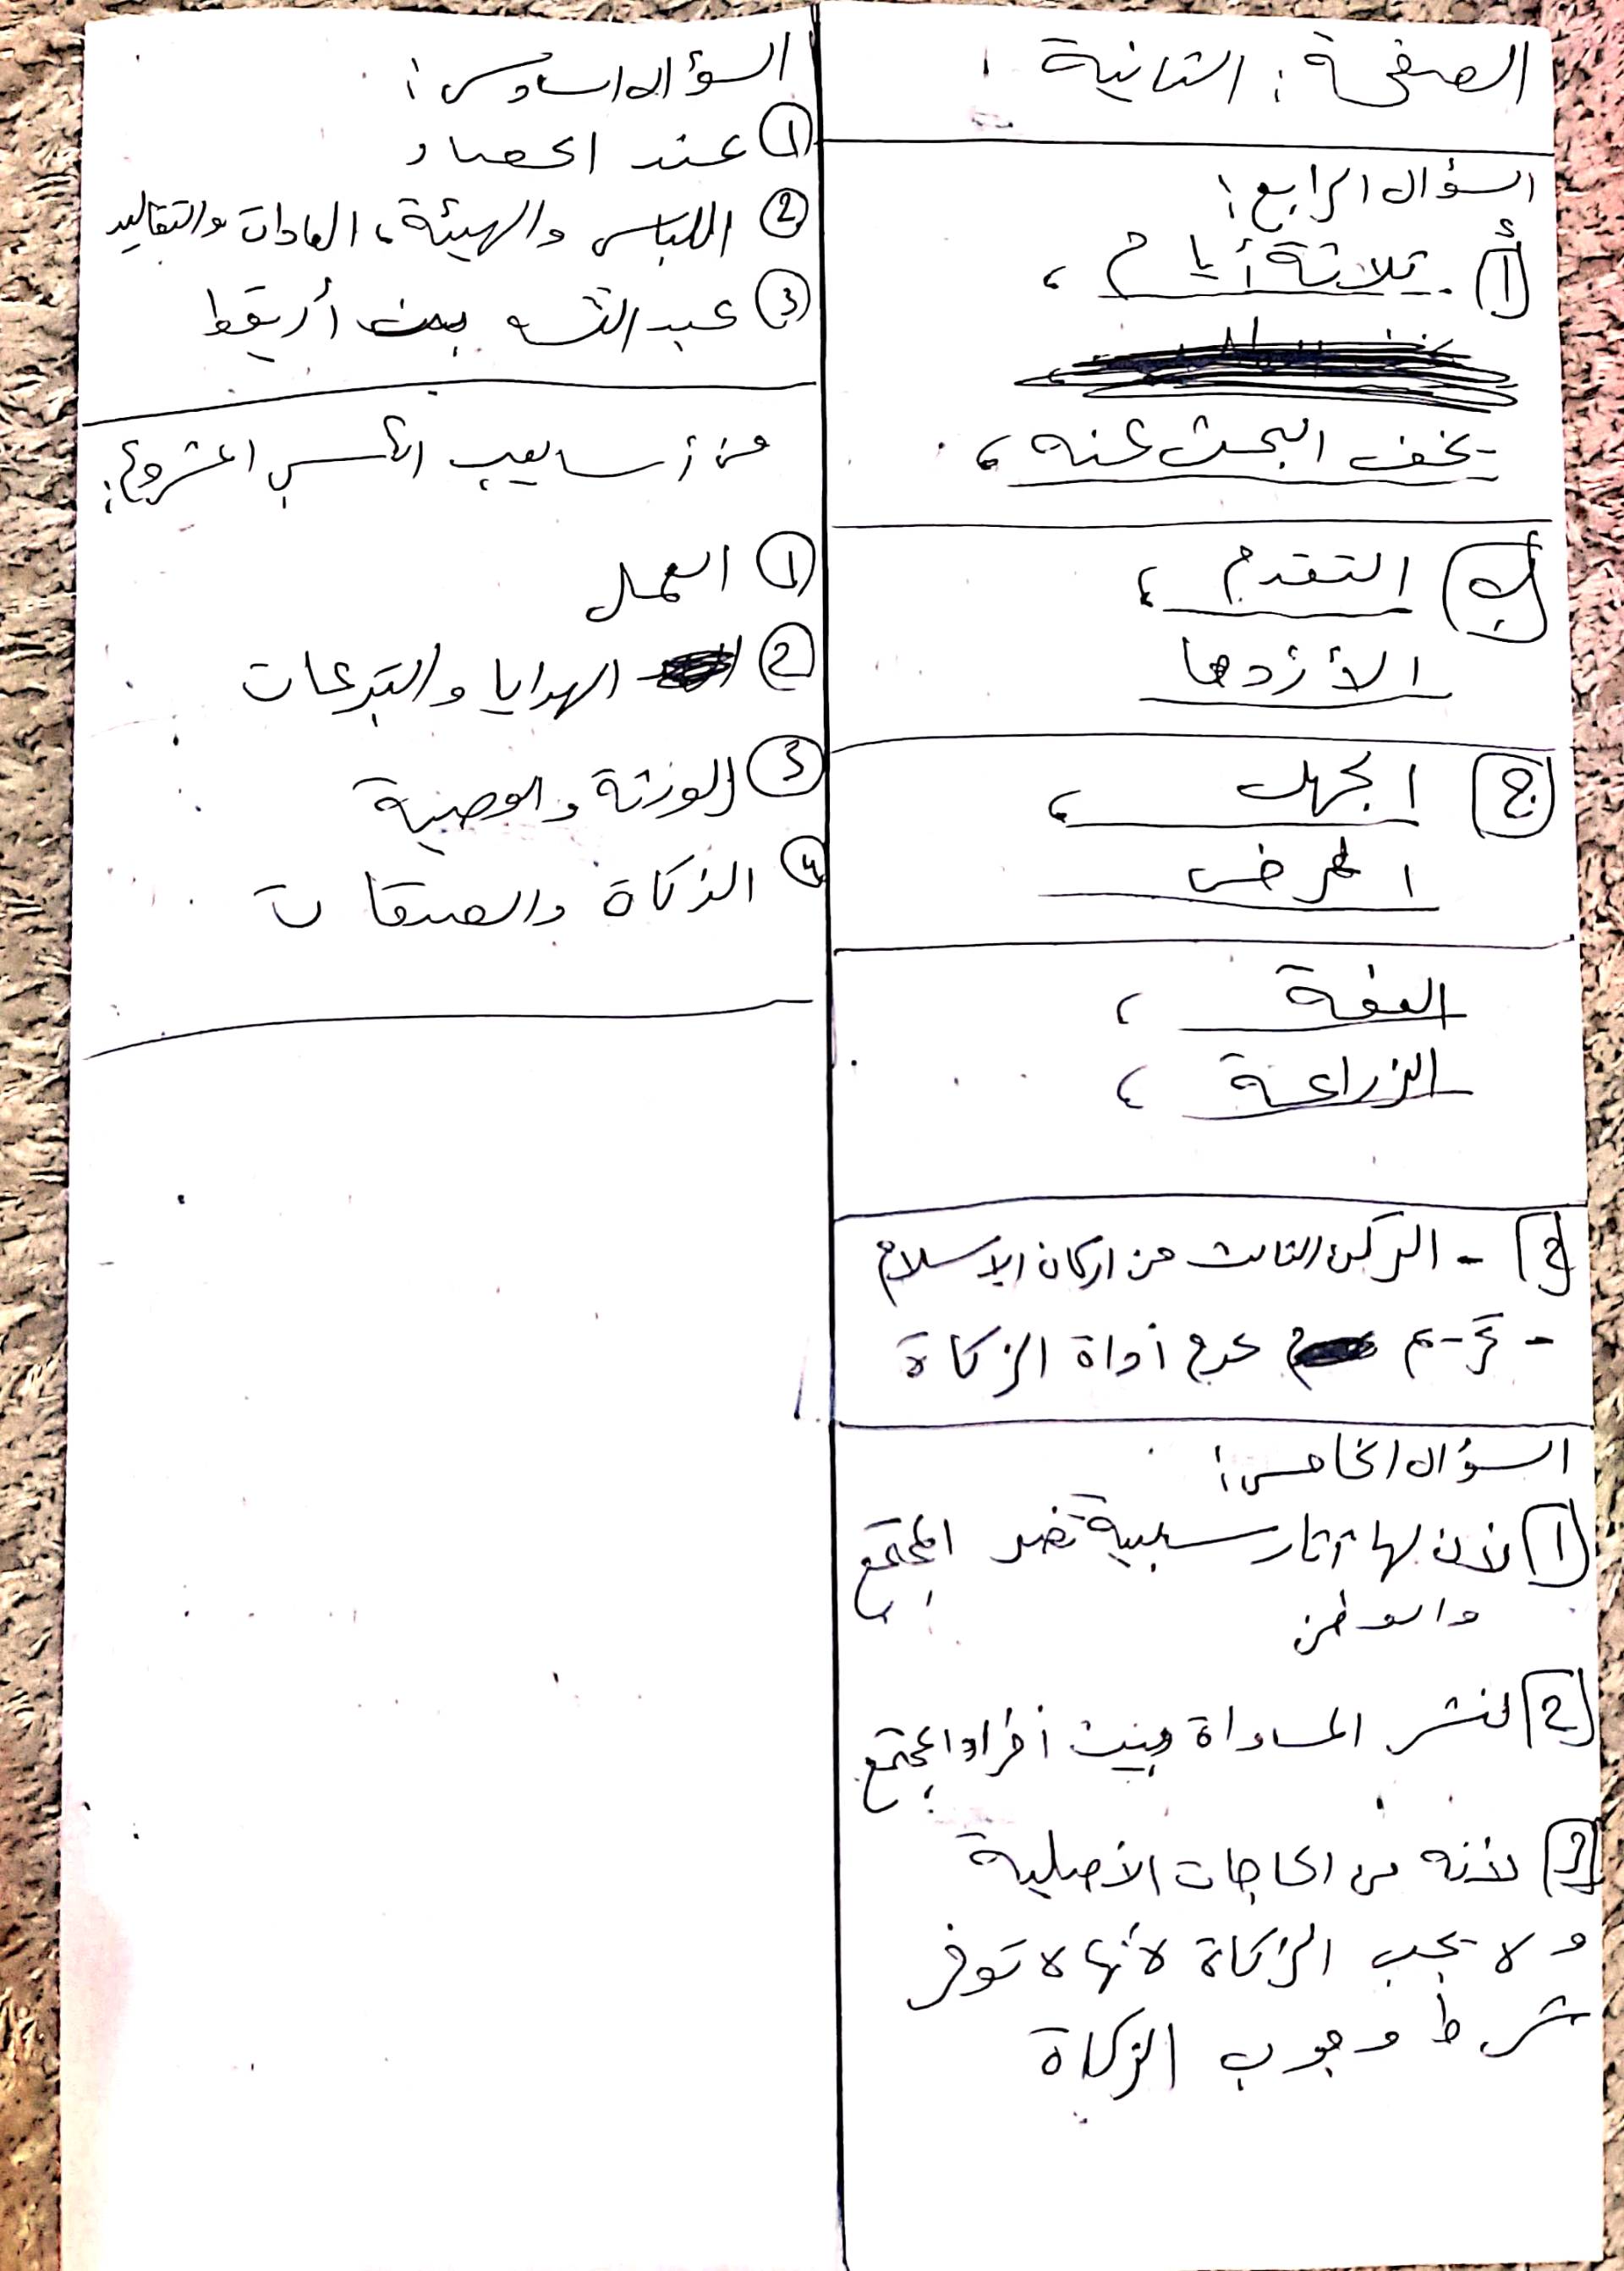 الصفحة : الثانية
السؤال الرابع :
أ - ثلاثة أيام ،
يخف البحث عنه ،
ب التقدم ،
الأزدها
ج الجهل ،
المرض
العفة ،
الزراعة ،
- الركن الثالث من اركان الإسلام
- تحريم عدم أداة الزكاة
السؤال الخامس :
1 لأن لها آثار سلبية تضر المجتمع
والوطن
2 لنشر المساواة وبين أفراد المجتمع
3 لأنه من الحاجات الأصلية
ولا يجب الزكاة لأنها لا توفر
شرط وجوب الزكاة
السؤال السادس :
1 عند الحصاد
2 اللباس والهيئة ، العادات والتقاليد
3 عبد الله بن أريقط
من أساليب الكسب المشروع :
1 العمل
2 الهدايا والتبرعات
3 الورثة والوصية
4 الزكاة والصدقات